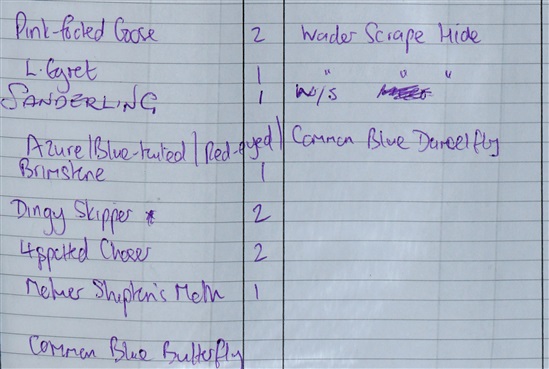 Pink-footed Goose 2 Wader Scrape Hide
L. Egret 1 " " "
SANDERLING 1 W/S
Azure/Blue-tailed/Red-eyed/Common Blue Damselfly
Brimstone 1
Dingy Skipper * 2
4 spotted Chaser 2
Mother Shipton's Moth 1
Common Blue Butterfly